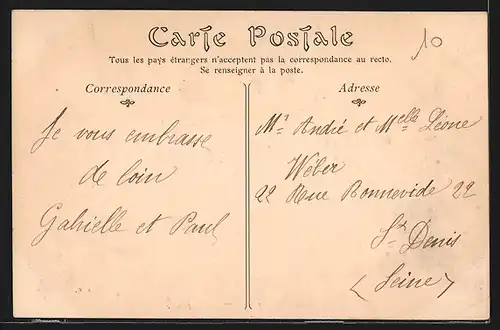 Carte Postale
10
Tous les pays étrangers n'acceptent pas la correspondance au recto.
Se renseigner à la poste.
Correspondance
Je vous embrasse
de loin
Gabrielle et Paul
Adresse
Mr André et Melle Léone
Wéber
22 Rue Bonnevide 22
St Denis
(Seine)